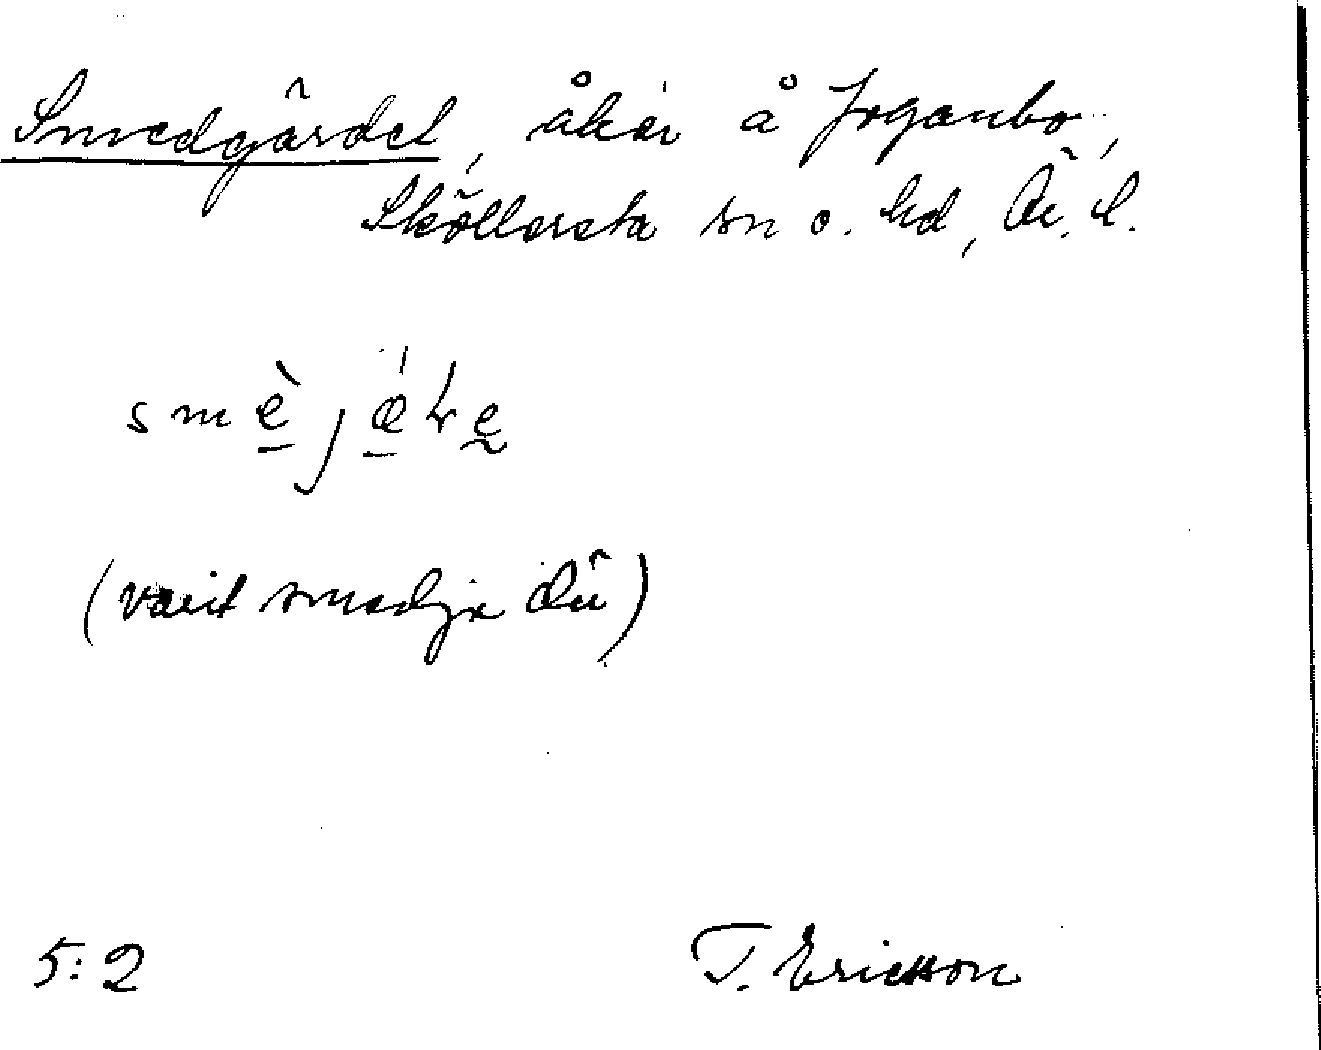 Smedgärdet, åker å Joganbo,
Sköllersta sn o. hd, Ör. l.
(varit smedja där)
5:2
T. Ericsson